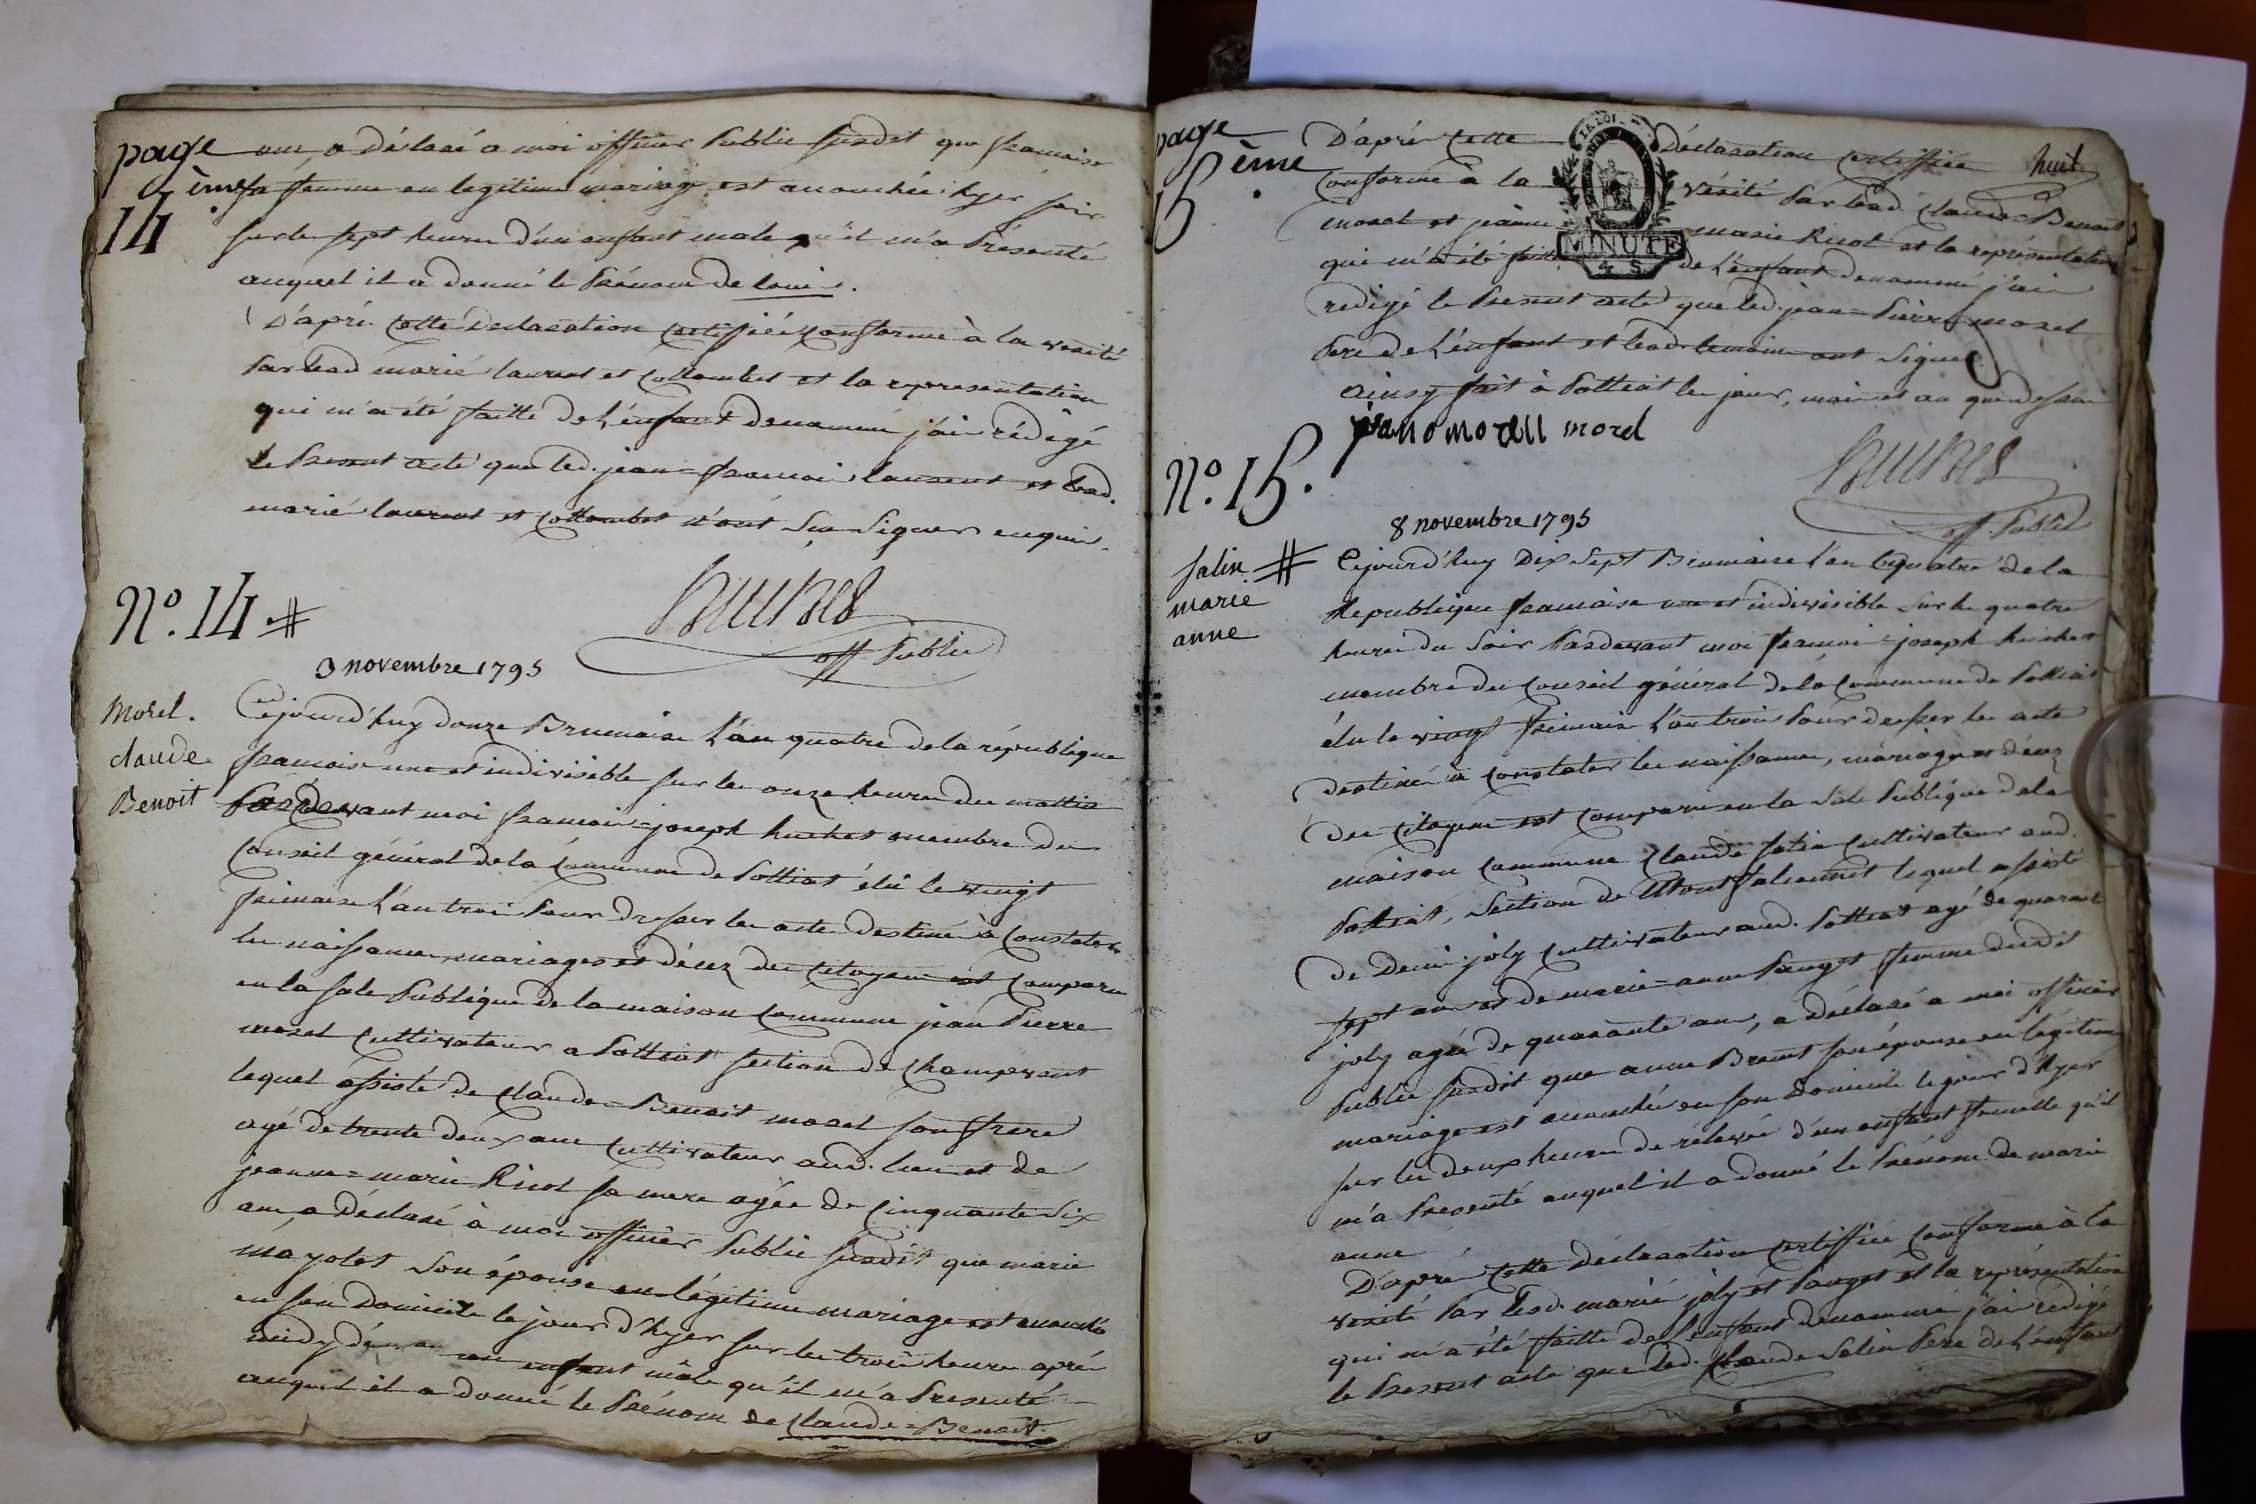 page
14 ème
ans, a déclaré a moi officier Public susdit que francoise
sa femme en legitime mariage est accouchée hyer soir
sur les sept heures d'un enfant male qu'il m'a Présenté
auquel il a donné le Prénom de louis.
D'aprés cette declaration certiffiée conforme à la verité
Par lesd mariés laurent et Collombet et la representation
qui m'a été faitte de L'enfant denommé j'ai rédigé
le Present acte que led. jean=francois laurent et lesd.
mariés laurent et Collombet n'ont sçu signer enquis.
huchet
off. Public
N°. 14 #
3 novembre 1795
Morel.
claude
Benoit
Cejourd'huy douze Brumaire L'an quatre de la république
francaise une et indivisible sur les onze heures du mattin
Pardevant moi francois=joseph huchet membre du
Conseil général de la Commune de Polliat élû le vingt
frimaire L'an trois Pour dresser les actes destinés à Constater
les naissances, mariages et décez des Citoyens est comparu
en la sale Publique de la maison Commune jean Pierre
morel Cultivateur a Polliat section de Champvent
lequel assisté de Claude=Benoit morel son frere
agé de trente deux ans Cultivateur aud. lieu et de
jeanne=marie Ricol sa mere agée de Cinquante six
ans, a déclaré à moi officier Public susdit que marie
mayolet son épouse en légitime mariage est accouchée
en son domicile le jour d'hyer sur les trois heures aprés
midy d'un enfant mâle qu'il m'a Presenté
auquel il a donné le Prénom de Claude=Benoit.
page
15 ème
huit
LA LOI
MINUTE
4 S
D'aprés cette Déclaration certiffiée
Conforme à la vérité Par lesd. Claude=Benoit
morel et jeanne marie Ricol et la représentation
qui m'a été faitte de L'enfant denommé j'ai
redigé le Present acte que led. jean=Pierre morel
Pere de L'enfant et lesd. temoins ont signés
ainsy fait à Polliat les jour, mois et an que dessus
morel
huchet
off. Public
N°. 15.
8 novembre 1795
Salin #
marie
anne
Cejourd'huy Dix sept Brumaire L'an quatre de la
Republique francaise une et indivisible sur les quatre
heures du soir Pardevant moi francois=joseph huchet
membre du Conseil général de la Commune de Polliat
élu le vingt frimaire L'an trois Pour dresser les actes
destinés à Constater les naissances, mariages et décez
des Citoyens est comparu en la sale Publique de la
maison Commune Claude Salin Cultivateur aud.
Polliat, section de Montfalconnet lequel assisté
de Denis joly Cultivateur aud. Polliat agé de quarante
sept ans et de marie=anne Pauget femme dudit
joly agée de quarante ans, a déclaré a moi officier
Public susdit que anne Brevet son épouse en légitime
mariage est accouchée en son domicile le jour d'hyer
sur les deux heures de rélevée d'un enfant femelle qu'il
m'a Presenté auquel il a donné le Prénom de marie
anne
D'aprés cette déclaration certiffiée conforme à la
verité Par lesd. mariés joly et Pauget et la représentation
qui m'a été faitte de L'enfant denommé j'ai rédigé
le Present acte que led. Claude Salin Pere de L'enfant